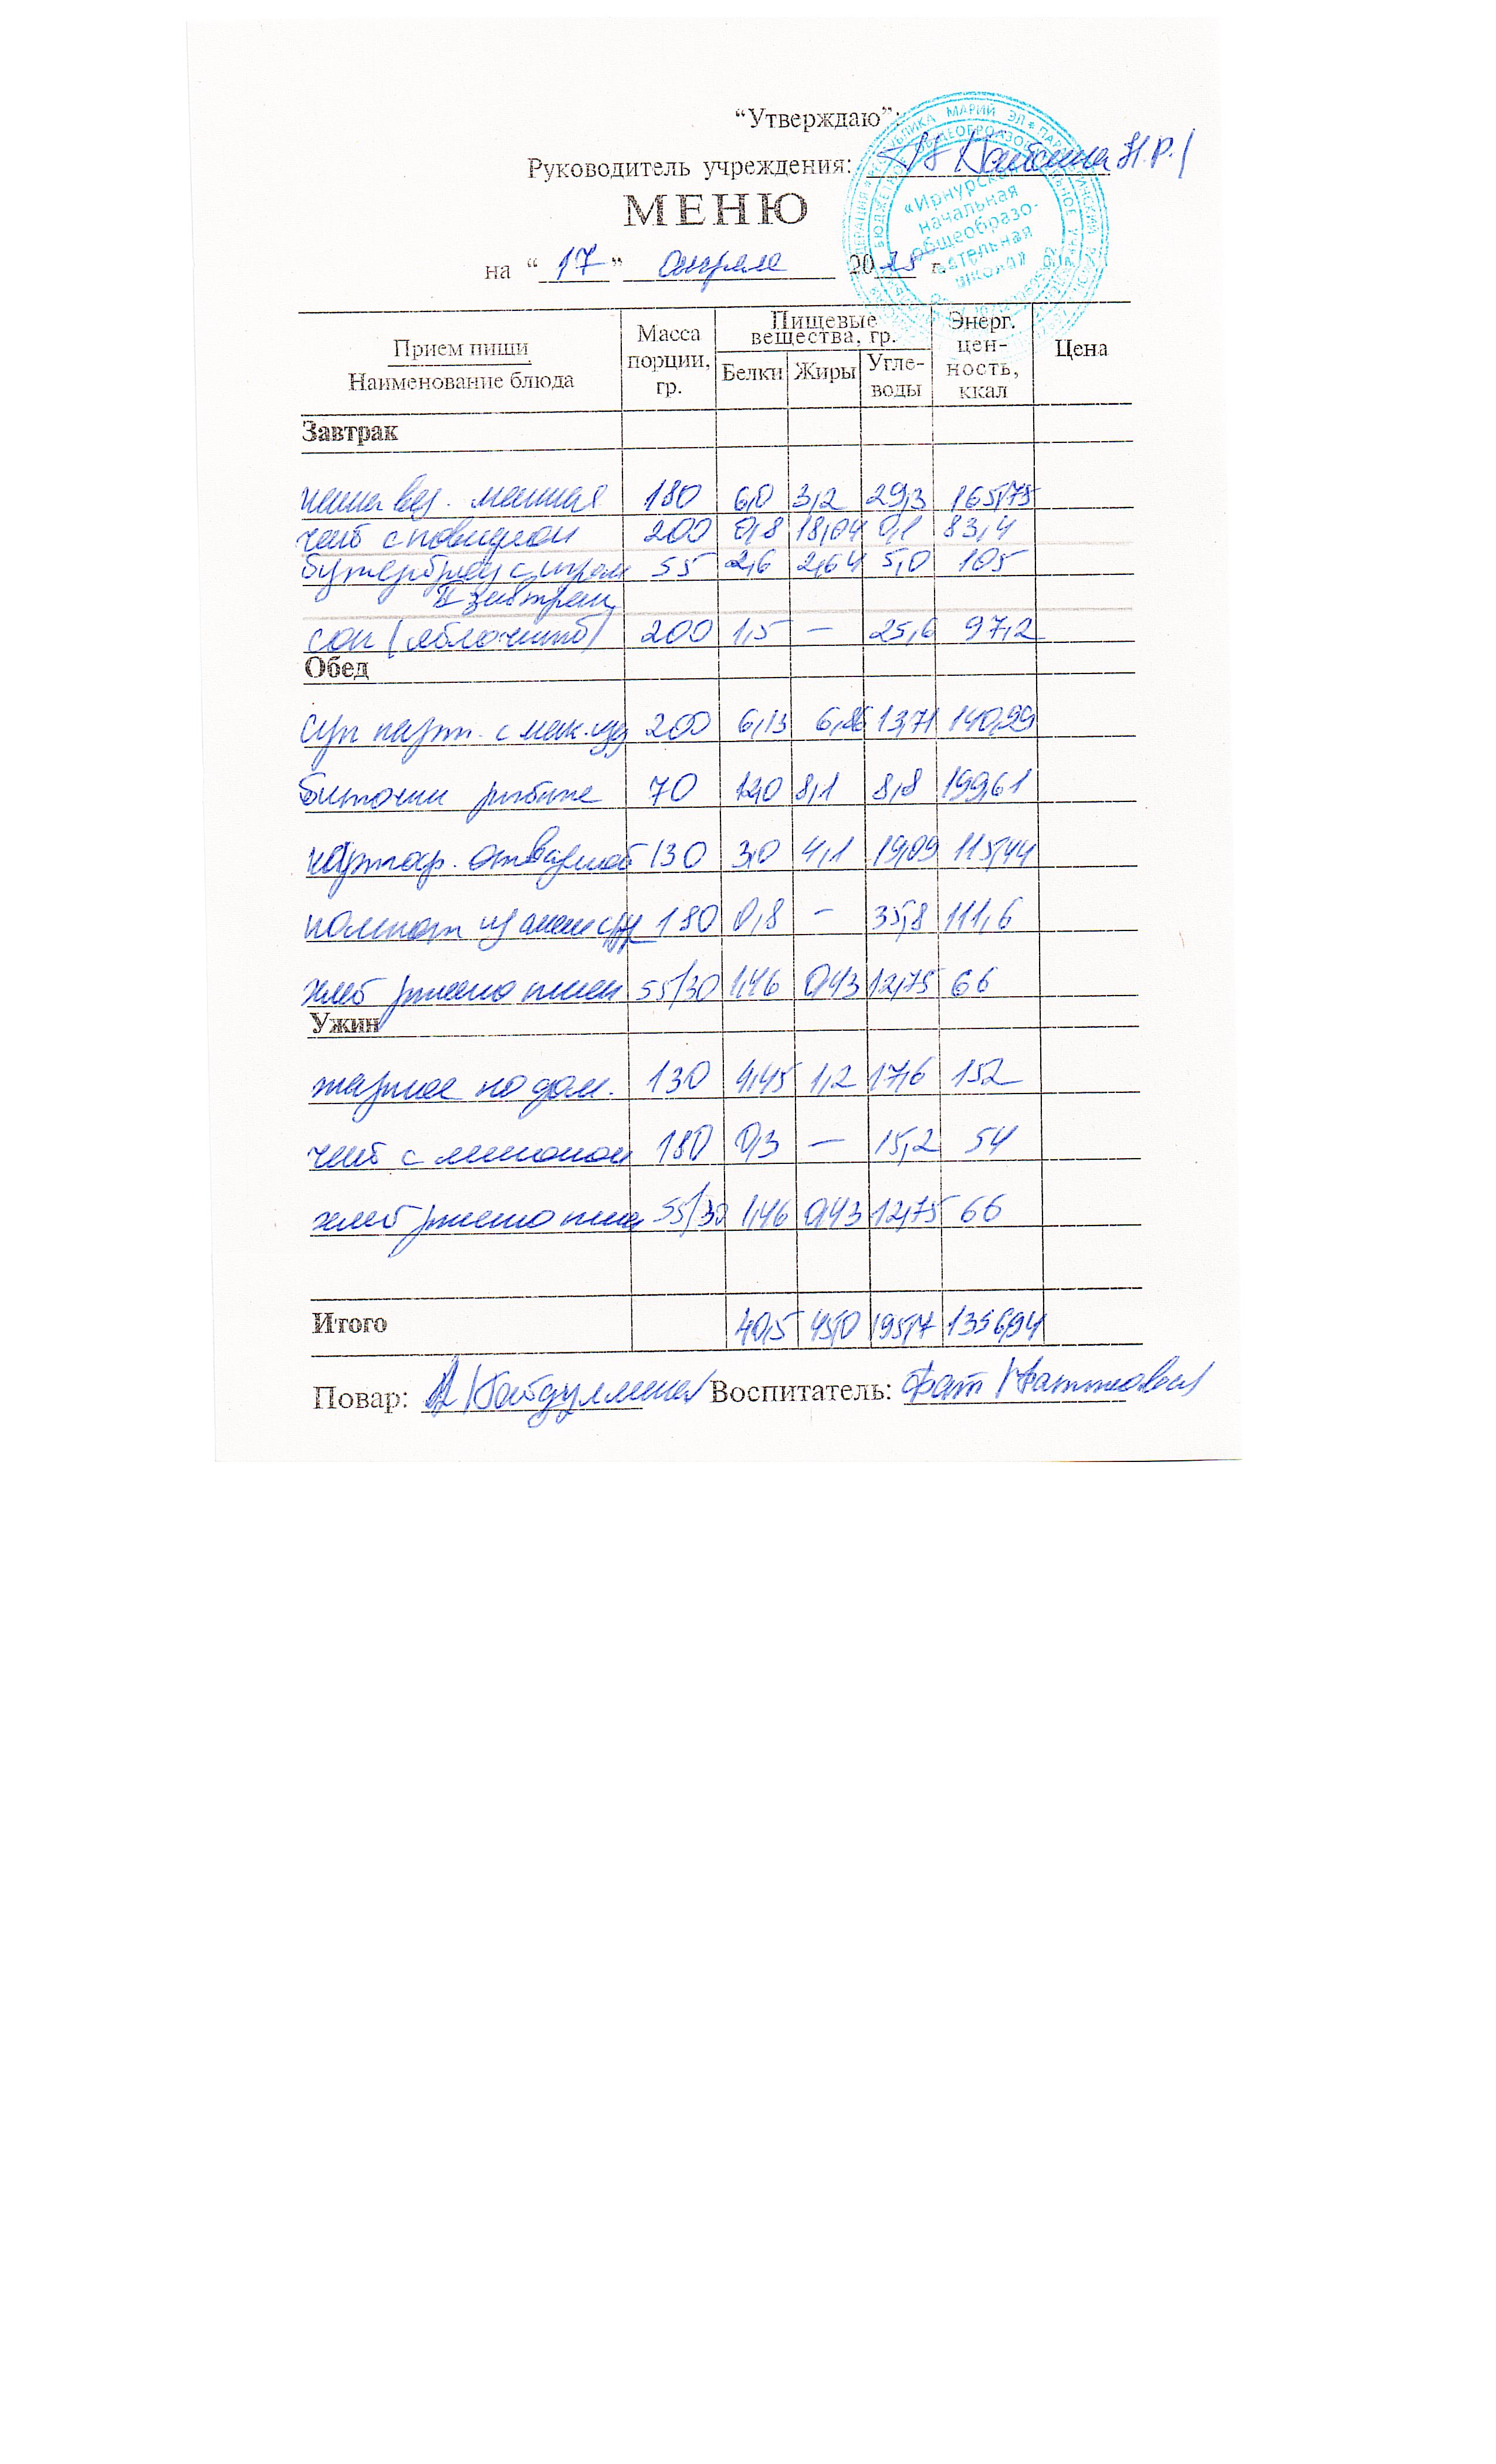 “Утверждаю”:
Руководитель учреждения: Н.Р./
МЕНЮ
на “17” апреля 2025 г.
«Ирнурская
начальная
общеобразо-
вательная
школа»
Прием пищи Наименование блюда Масса порции, гр. Пищевые вещества, гр. Белки Жиры Угле-воды Энерг. цен-ность, ккал Цена
Завтрак
каша вяз. манная 180 6,0 3,2 29,3 165,75
чай с повидлом 200 0,8 18,04 0,1 83,4
бутерброд с сыром 55 2,6 2,64 5,0 105
II завтрак
сок (яблочный) 200 1,5 — 25,6 97,2
Обед
Суп карт. с мак. изд 200 6,13 6,86 13,71 140,99
биточки рыбные 70 12,0 8,1 8,8 199,61
картоф. отварной 130 3,0 4,1 19,09 115,44
компот из смеси с/ф 180 0,8 — 35,8 111,6
хлеб ржано пшен 55/30 1,46 0,43 12,75 66
Ужин
жаркое по дом. 130 4,45 1,2 17,6 152
чай с лимоном 180 0,3 — 15,2 54
хлеб ржано пше 55/30 1,46 0,43 12,75 66
Итого 40,5 45,0 195,7 1356,94
Повар: Воспитатель: